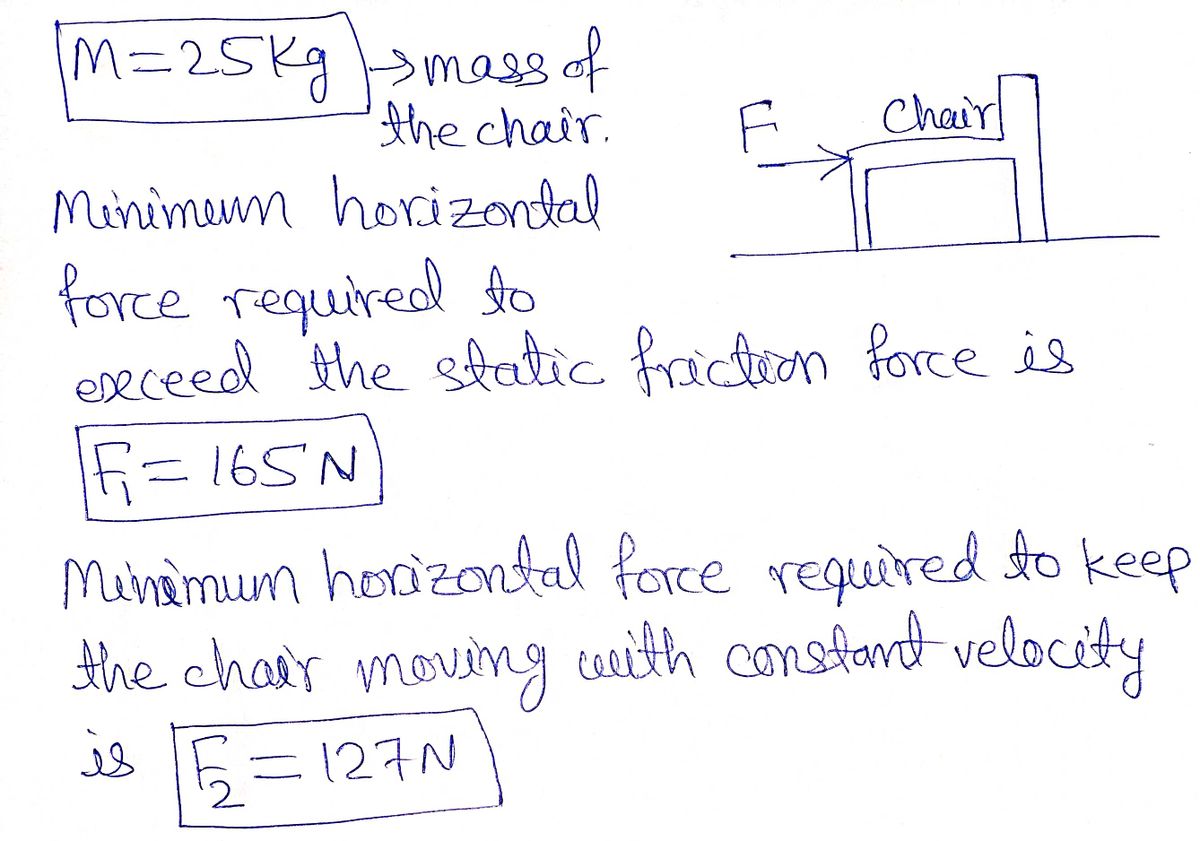 M=25Kg → mass of
the chair.
F Chair
Minimum horizontal
force required to
exceed the static friction force is
F₁ = 165 N
Minimum horizontal force required to keep
the chair moving with constant velocity
is F₂ = 127N